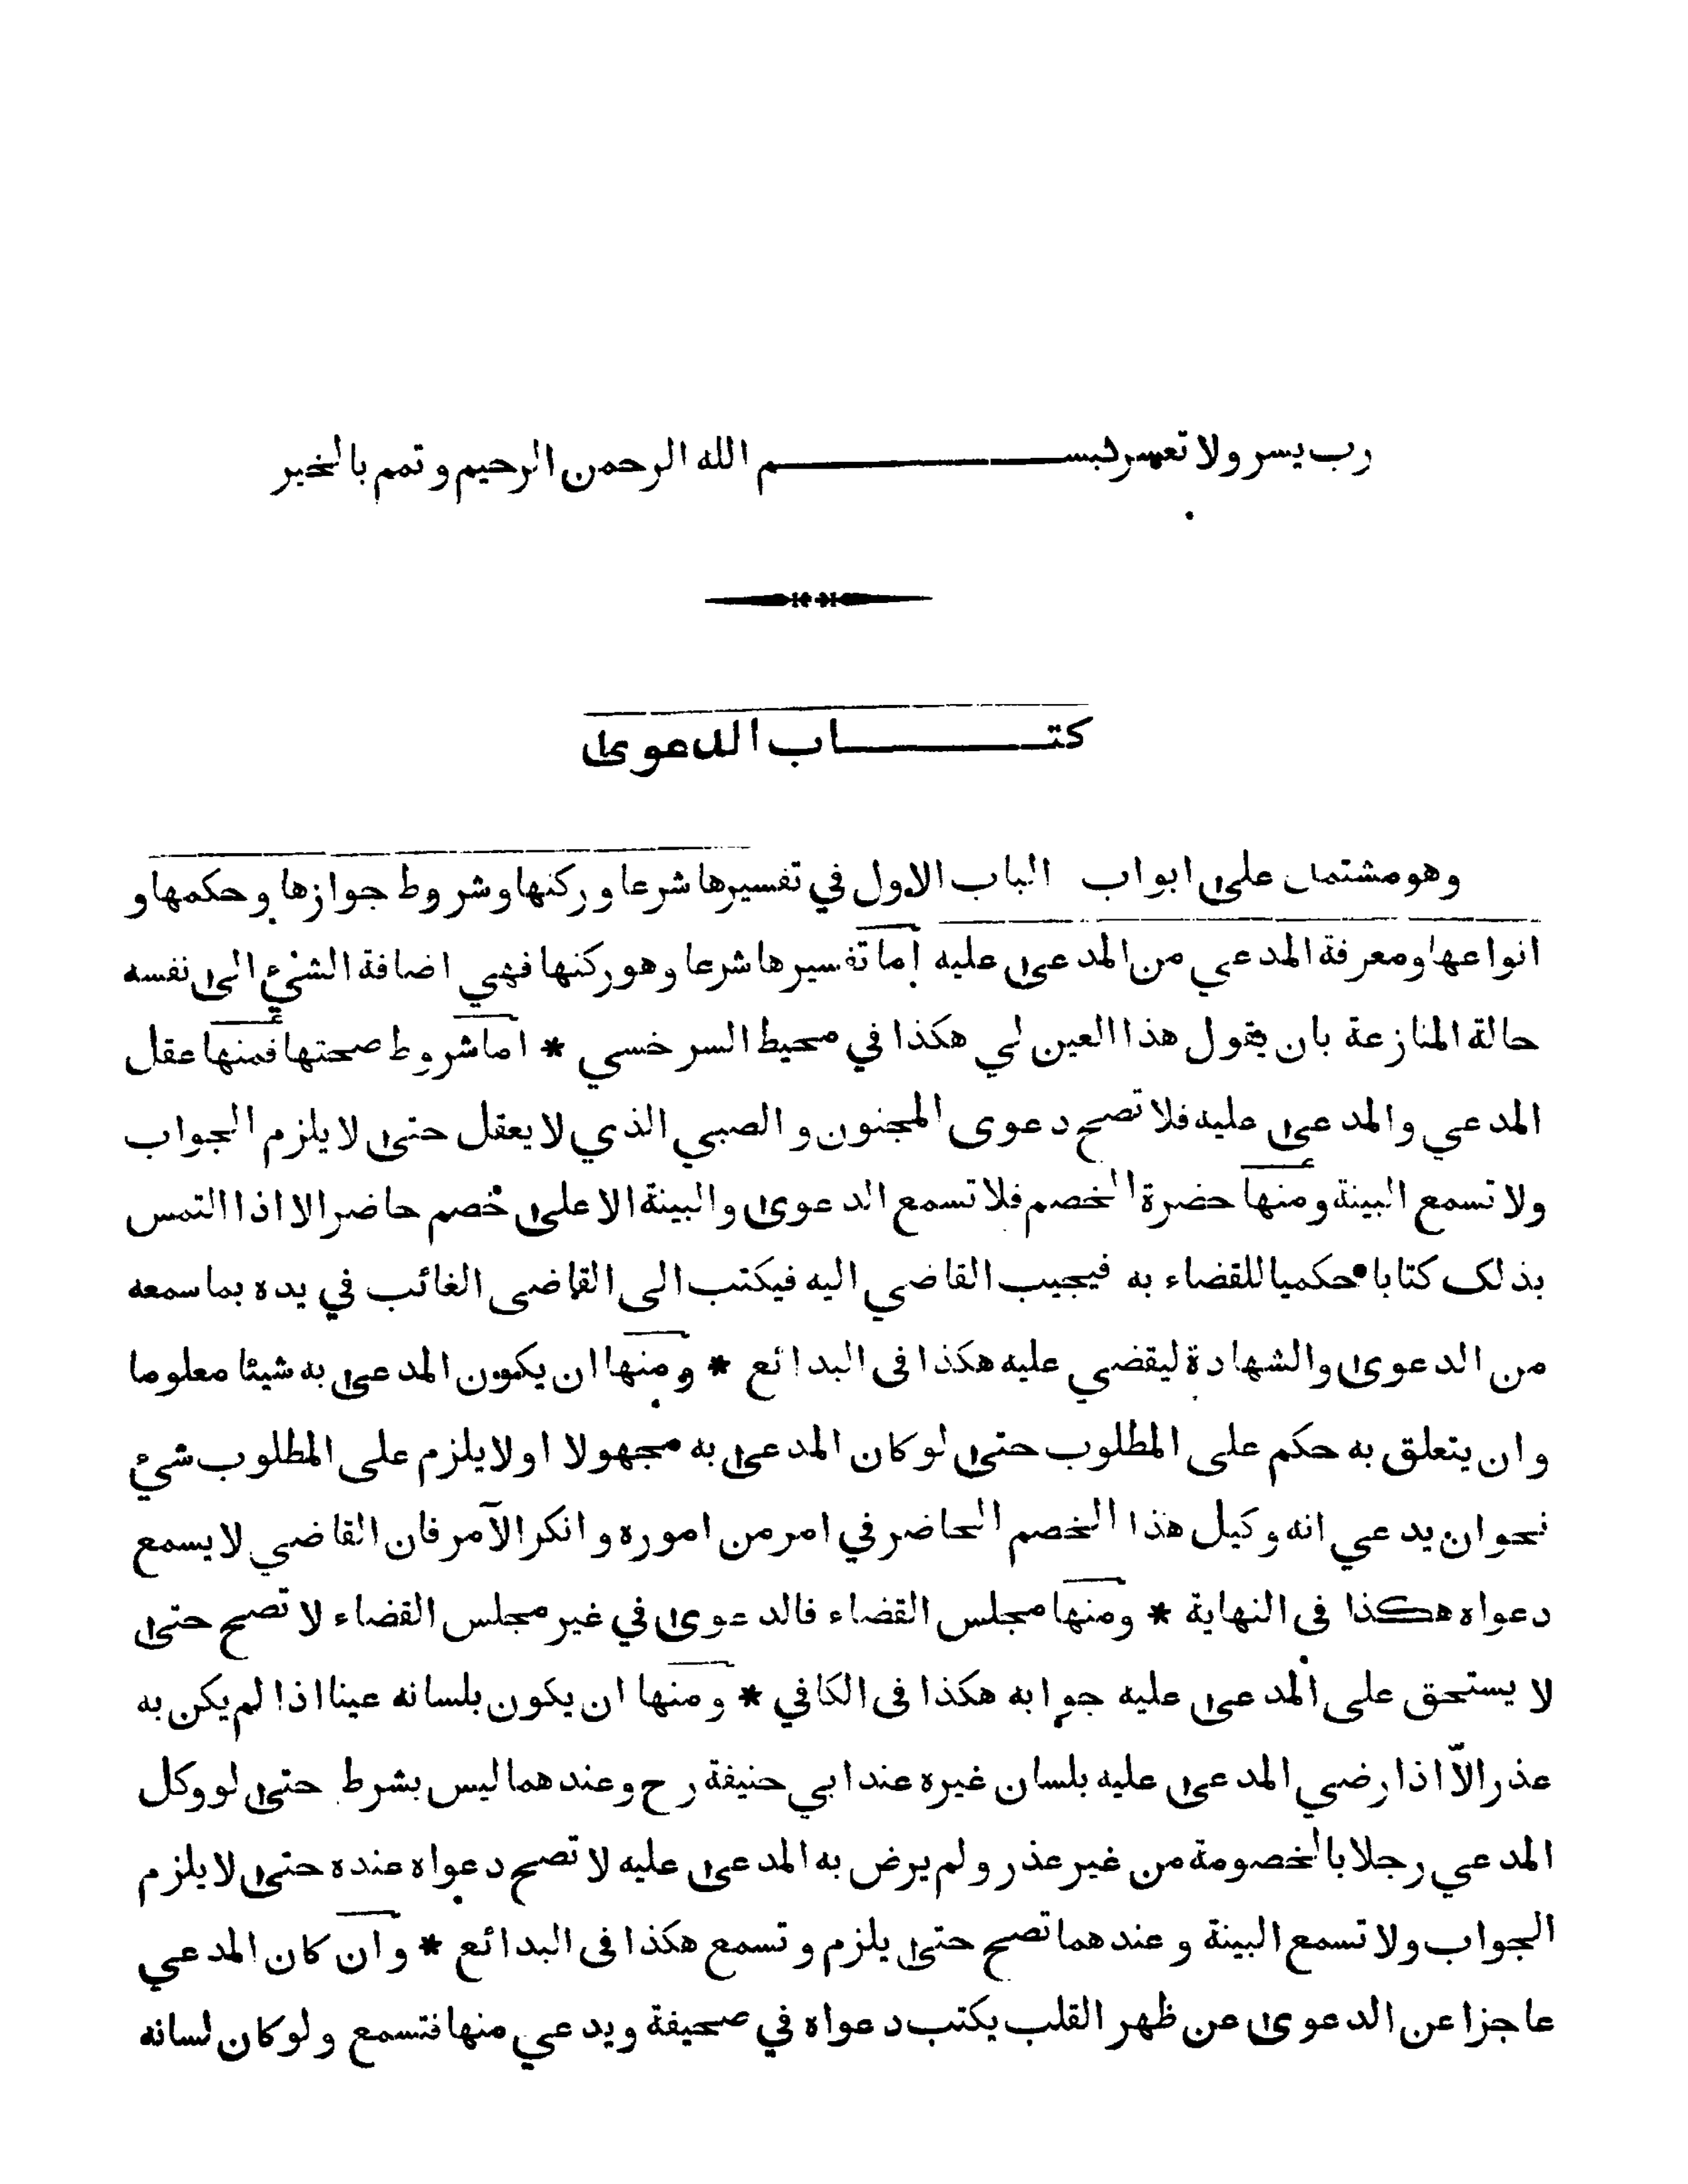 رب يسر ولا تعسر بسم الله الرحمن الرحيم وتمم بالخير
كتاب الدعوى
وهو مشتمل على ابواب الباب الاول في تفسيرها شرعا وركنها وشروط جوازها وحكمها و
انواعها ومعرفة المدعي من المدعى عليه اما تفسيرها شرعا وهو ركنها فهي اضافة الشئ الى نفسه
حالة المنازعة بان يقول هذا العين لي هكذا في محيط السرخسي * اما شروط صحتها فمنها عقل
المدعي والمدعى عليه فلا تصح دعوى المجنون والصبي الذي لا يعقل حتى لا يلزم الجواب
ولا تسمع البينة ومنها حضرة الخصم فلا تسمع الدعوى والبينة الا على خصم حاضر الا اذا التمس
بذلك كتابا حكميا للقضاء به فيجيب القاضي اليه فيكتب الى القاضى الغائب في يده بما سمعه
من الدعوى والشهادة ليقضي عليه هكذا فى البدائع * ومنها ان يكون المدعى به شيئا معلوما
وان يتعلق به حكم على المطلوب حتى لو كان المدعى به مجهولا اولا يلزم على المطلوب شئ
نحو ان يدعي انه وكيل هذا الخصم الحاضر في امر من اموره وانكر الآمر فان القاضي لا يسمع
دعواه هكذا فى النهاية * ومنها مجلس القضاء فالدعوى في غير مجلس القضاء لا تصح حتى
لا يستحق على المدعى عليه جوابه هكذا فى الكافي * ومنها ان يكون بلسانه عينا اذا لم يكن به
عذر الاّ اذا رضي المدعى عليه بلسان غيره عند ابي حنيفة رح وعندهما ليس بشرط حتى لو وكل
المدعي رجلا بالخصومة من غير عذر ولم يرض به المدعى عليه لا تصح دعواه عنده حتى لا يلزم
الجواب ولا تسمع البينة وعندهما تصح حتى يلزم وتسمع هكذا فى البدائع * وان كان المدعي
عاجزا عن الدعوى عن ظهر القلب يكتب دعواه في صحيفة ويدعي منها فتسمع ولو كان لسانه